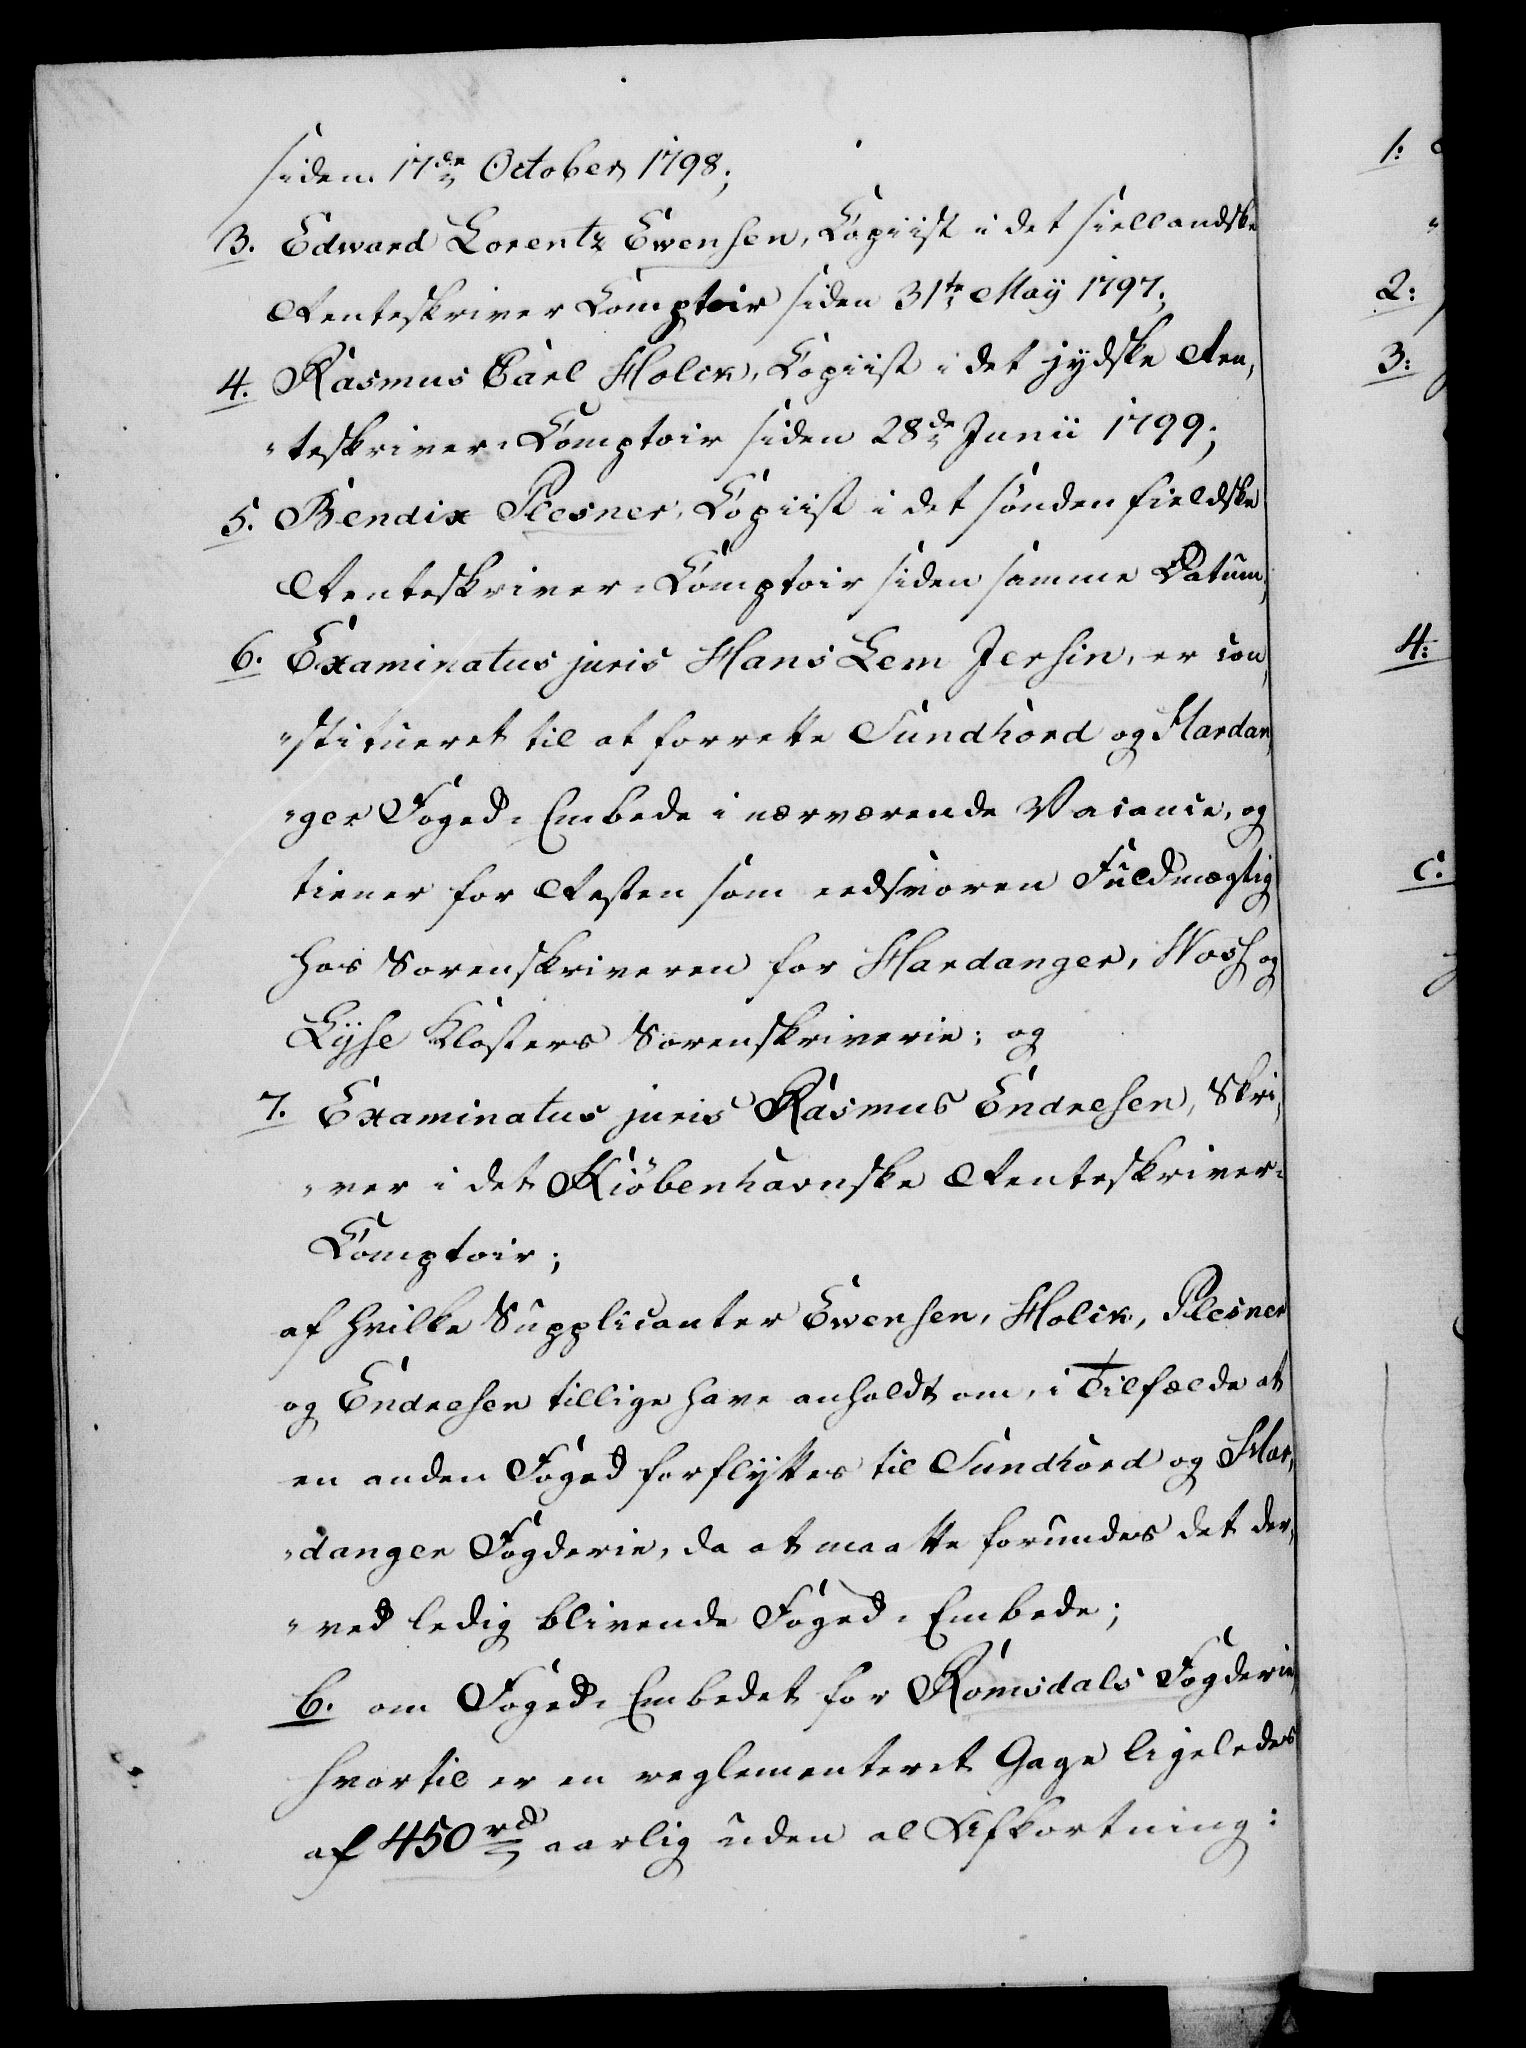 siden 17de October 1798;
3. Edward Lorentz Ewensen, Copiist i det siellandske
Renteskriver Comptoir siden 31te Maÿ 1797;
4. Rasmus Carl Holck, Copiist i det jydske Ren„
„teskriver-Comptoir siden 28de Junii 1799;
5. Bendix Plesner, Copiist i det søndenfieldske
Renteskriver-Comptoir siden samme Datum;
6. Examinatus juris Hans Lem Jersin, er con„
„stitueret til at forrette Sundhord og Hardan„
„ger Foged-Embede i nærværende Vacance, og
tiener for Resten som eedsvoren Fuldmægtig
hos Sorenskriveren for Hardanger, Woss og
Lyse Klosters Sorenskriverie; og
7. Examinatus juris Rasmus Endresen, Skri„
„ver i det Kiöbenhavnske Renteskriver-
Comptoir;
af hvilke Supplicanter Ewensen, Holck, Plesner
og Endresen tillige have anholdt om, i Tilfælde at
en anden Foged forflyttes til Sundhord og Har„
„danger Fogderie, da at maatte forundes det der„
„ved ledig blivende Foged-Embede;
b. om Foged-Embedet for Romsdals Fogderie,
hvortil er en reglementeret Gage ligeledes
af 450 rd aarlig uden al Afkortning:
1:
2:
3:
4:
c.